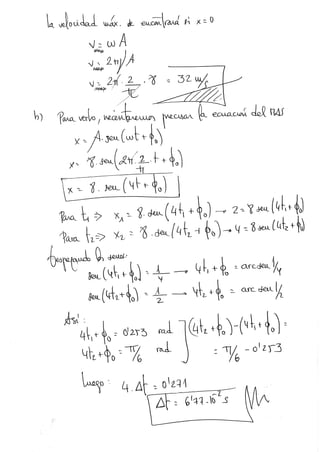 La velocidad máx. se encontrará si x=0
V = ω A
V_máx = 2πf A
V_máx = 2π · 2/π · 8 = 32 m/s
b) Para verlo, necesitaremos precisar la ecuación del MAS
x = A · sen (ωt + φ₀)
x = 8 · sen (2π · 2/π · t + φ₀)
x = 8 · sen (4t + φ₀)
Para t₁ ⇒ x₁ = 8 · sen (4t₁ + φ₀) → 2 = 8 sen (4t₁ + φ₀)
Para t₂ ⇒ x₂ = 8 · sen (4t₂ + φ₀) → 4 = 8 sen (4t₂ + φ₀)
Despejando los senos:
sen (4t₁ + φ₀) = 1/4 → 4t₁ + φ₀ = arcsen 1/4
sen (4t₂ + φ₀) = 1/2 → 4t₂ + φ₀ = arcsen 1/2
Así:
4t₁ + φ₀ = 0'253 rad
4t₂ + φ₀ = π/6 rad
] (4t₂ + φ₀) - (4t₁ + φ₀) =
= π/6 - 0'253
Luego: 4 · Δt = 0'271
Δt = 6'77 · 10⁻² s